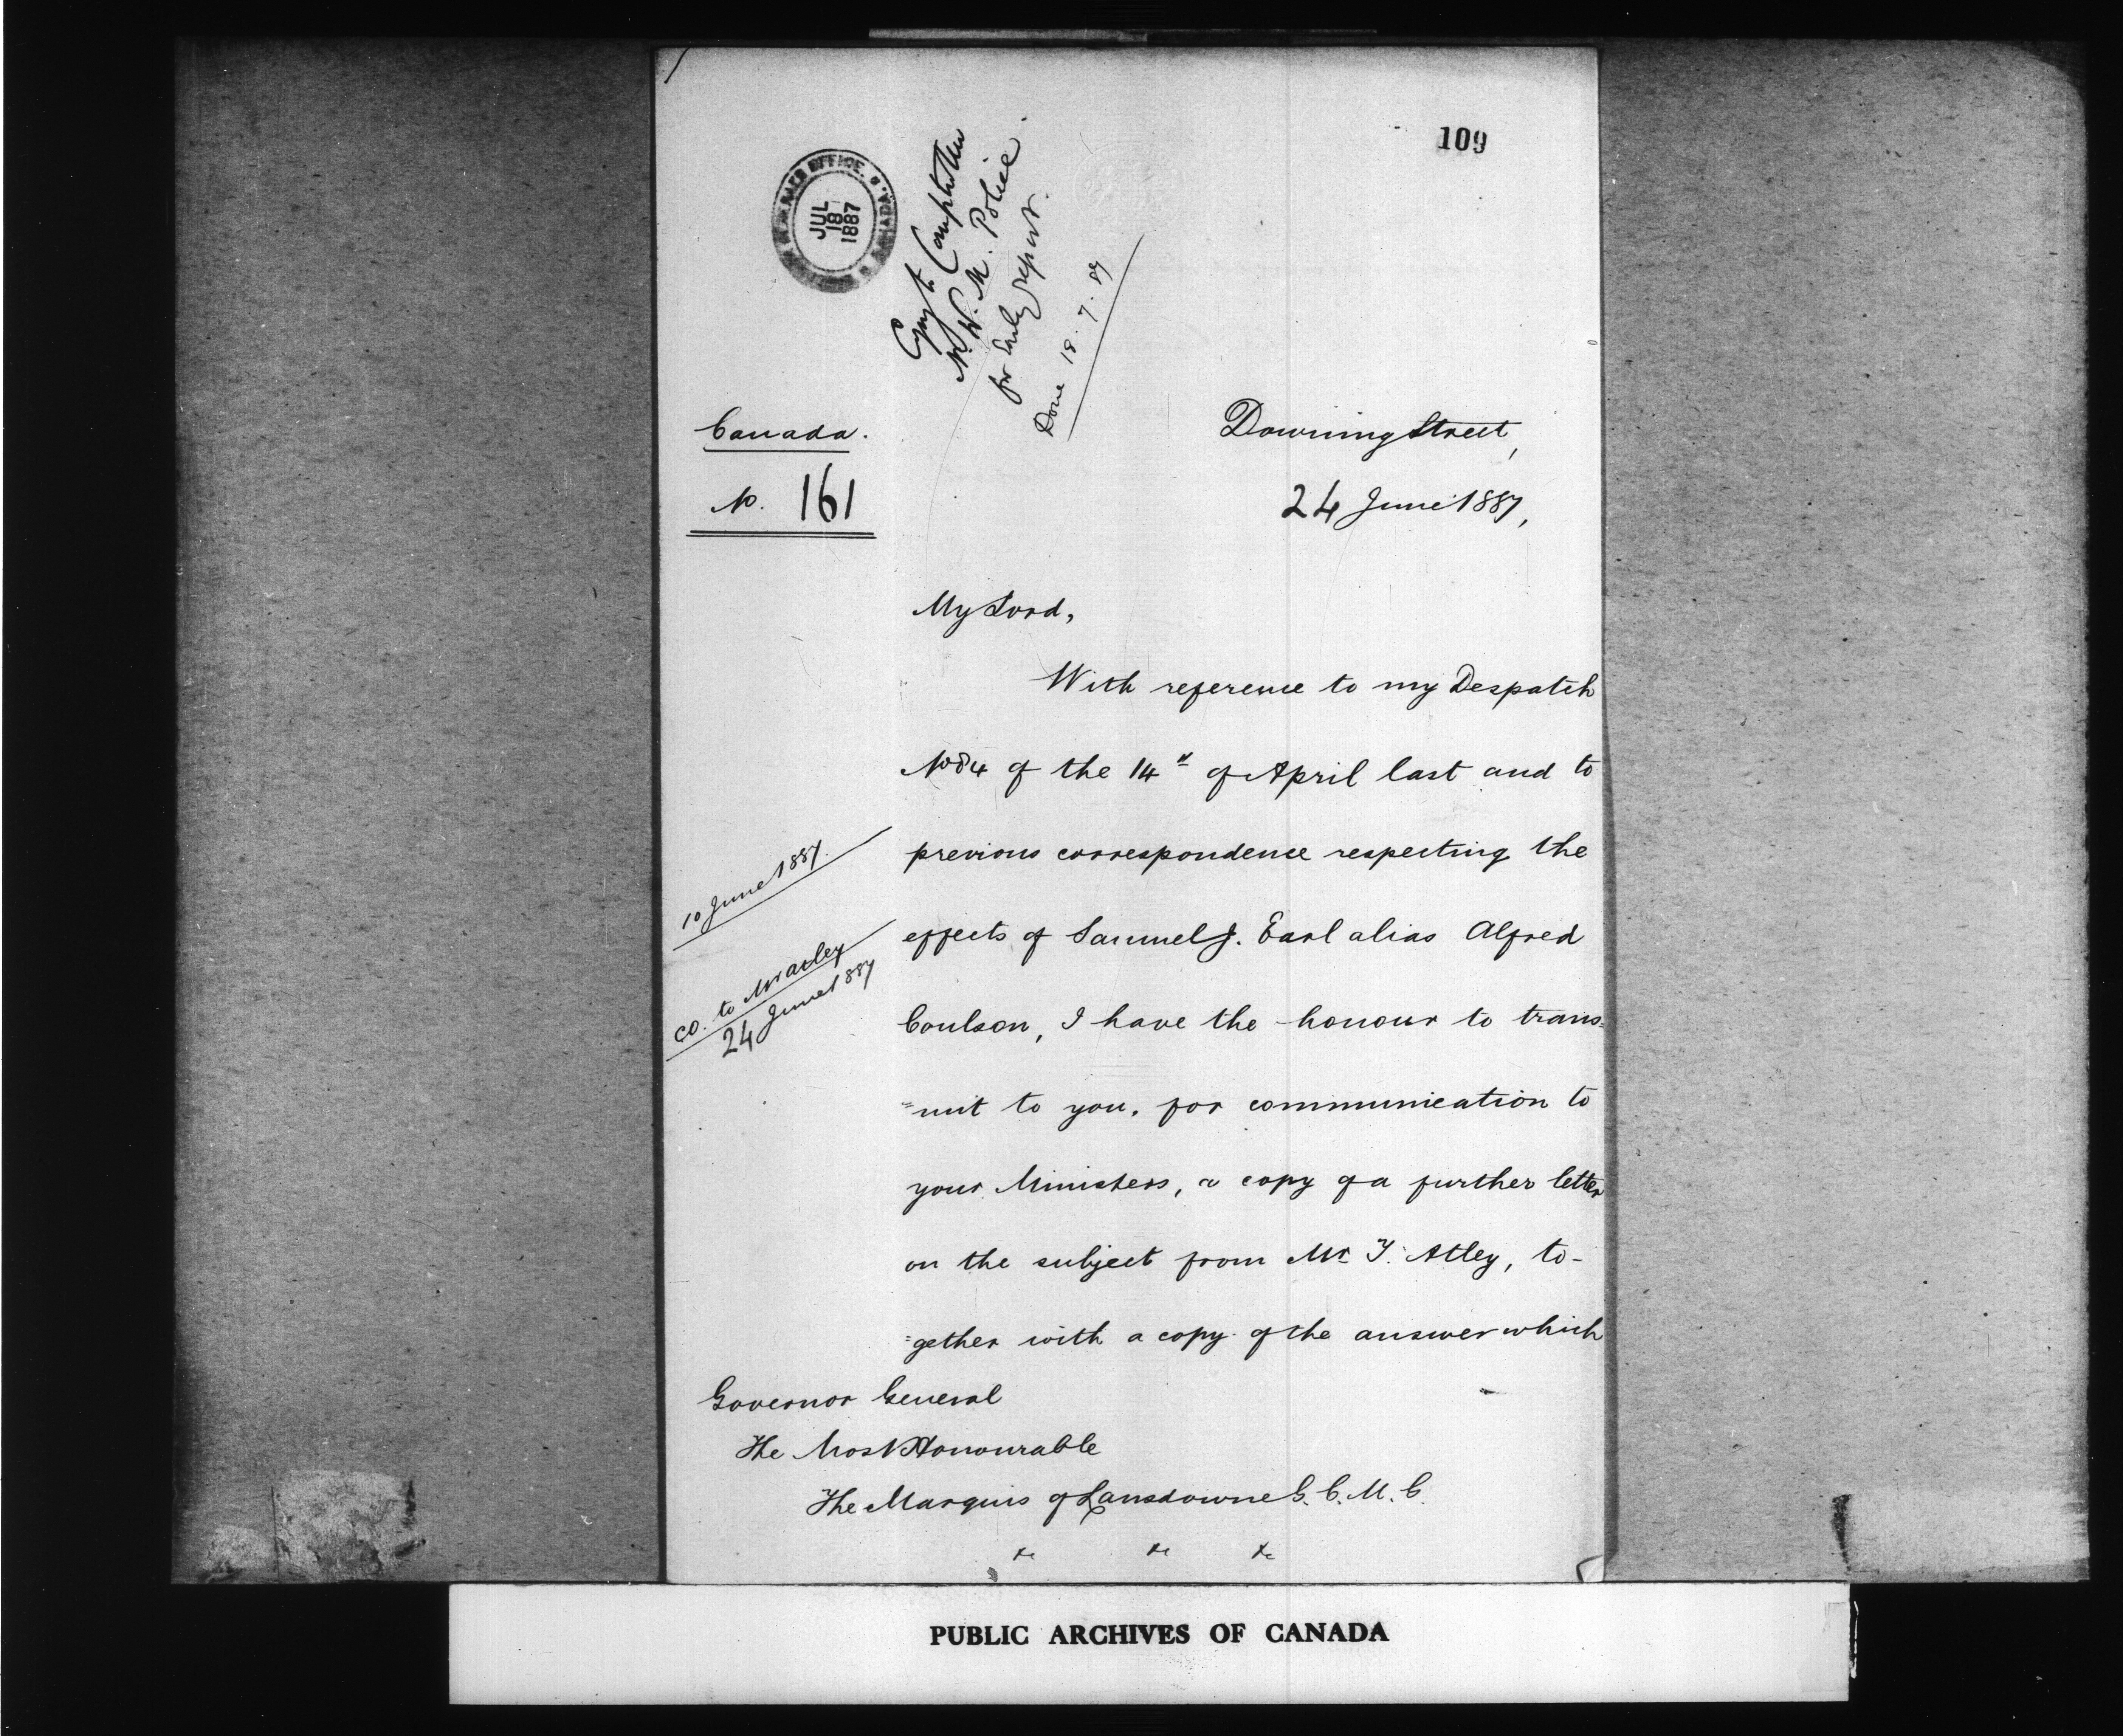 109
GOVERNOR GENERAL'S OFFICE. CANADA.
JUL
18
1887
Copy to Comptroller
N. W. M. Police
for early report.
Done 18. 7. 87
Canada.
No. 161
Downing Street,
24 June 1887,
My Lord,
With reference to my Despatch
No 84 of the 14th of April last and to
previous correspondence respecting the
10 June 1887.
effects of Samuel J. Earl alias Alfred
Co. to Mr Atley
24 June 1887
Coulson, I have the honour to trans=
=mit to you, for communication to
your Ministers, a copy of a further letter
on the subject from Mr T. Atley, to-
=gether with a copy of the answer which
Governor General
The Most Honourable
The Marquis of Lansdowne G. C. M. G.
&c &c &c
PUBLIC ARCHIVES OF CANADA